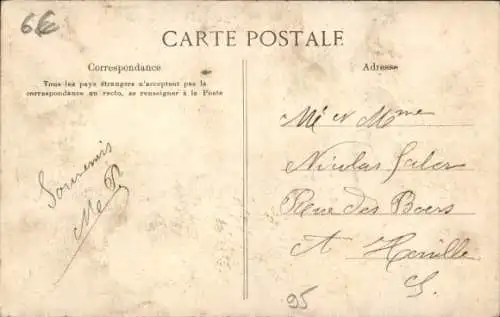 6€
CARTE POSTALE
Correspondance
Tous les pays étrangers n'acceptent pas la
correspondance au recto, se renseigner à la Poste
Souvenir
Adresse
Mr et Mme
Nicolas
Rue des Boers
A Houille
S.
95